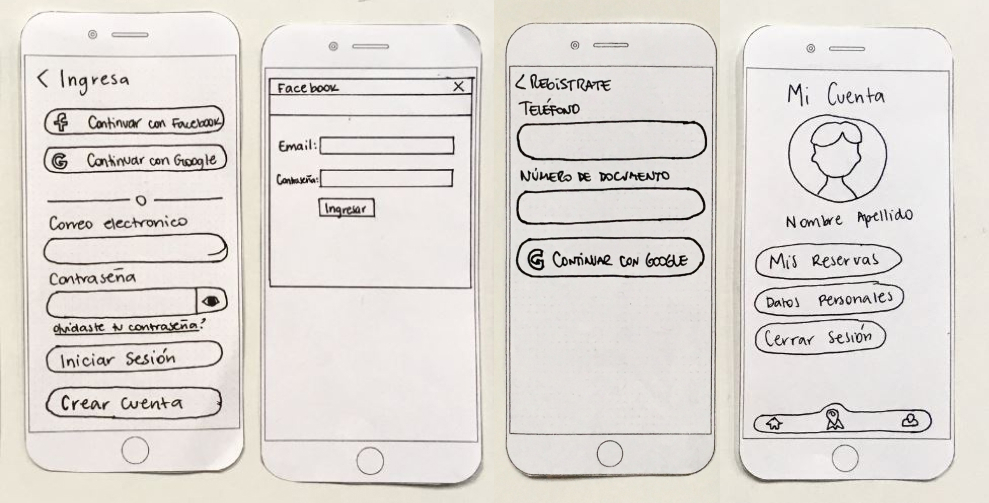 < Ingresa
Continuar con Facebook
G Continuar con Google
O
Correo electronico
Contraseña
olvidaste tu contraseña?
Iniciar Sesión
Crear Cuenta
Facebook X
Email:
Contraseña:
Ingresar
< REGISTRATE
TELÉFONO
NÚMERO DE DOCUMENTO
G CONTINUAR CON GOOGLE
Mi Cuenta
Nombre Apellido
Mis Reservas
Datos Personales
Cerrar Sesión